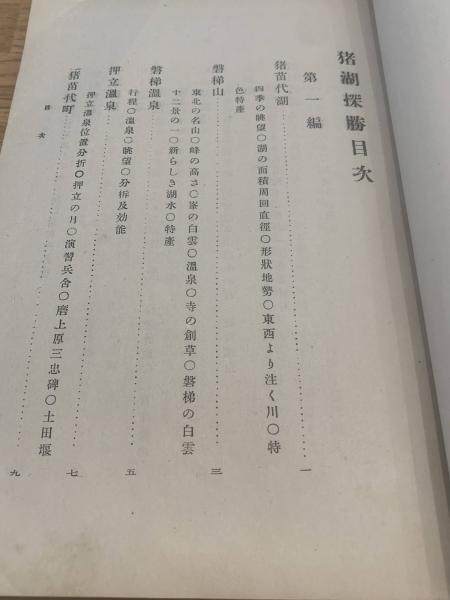 猪湖探勝目次
第一編
猪苗代湖……………………一
四季の眺望〇湖の面積周回直徑〇形狀地勢〇東西より注ぐ川〇特
色特產
磐梯山……………………三
東北の名山〇峰の高さ〇峯の白雲〇溫泉〇寺の創草〇磐梯の白雲
十二景の一〇新らしき湖水〇特產
磐梯溫泉……………………五
行程〇溫泉〇眺望〇分拆及効能
押立溫泉……………………七
押立溫泉位置分拆〇押立の月〇演習兵舍〇磨上原三忠碑〇土田堰
猪苗代町……………………九
目次